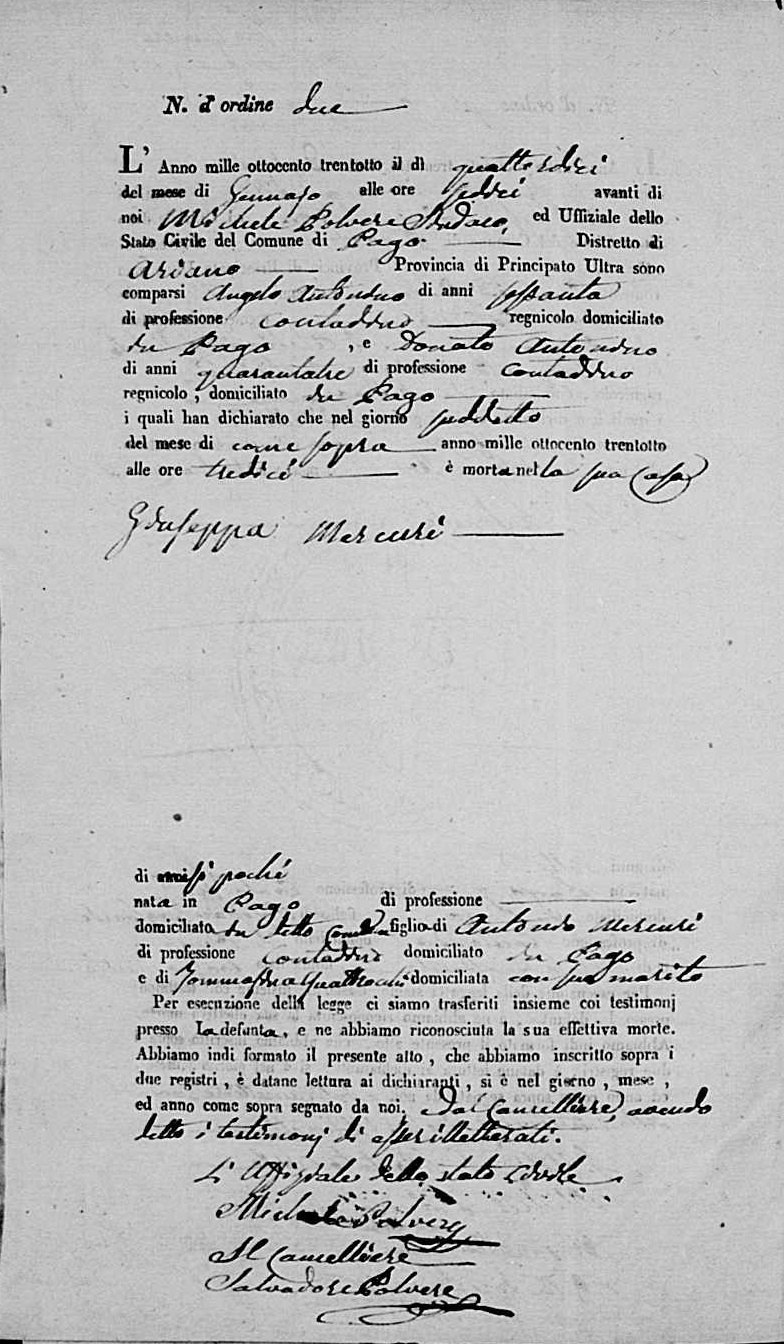 N. d'ordine due
L' Anno mille ottocento trentotto il dì quattordici
del mese di Gennajo alle ore sedici avanti di
noi Michele Polvere Sindaco, ed Uffiziale dello
Stato Civile del Comune di Pago Distretto di
Ariano Provincia di Principato Ultra sono
comparsi Angelo Antonino di anni sessanta
di professione contadino regnicolo domiciliato
in Pago, e Donato Antonino
di anni quarantatre di professione contadino
regnicolo, domiciliato in Pago
i quali han dichiarato che nel giorno suddetto
del mese di come sopra anno mille ottocento trentotto
alle ore tredici è morta nella sua casa
Giuseppa Mercuri
di pochi
nata in Pago di professione
domiciliata in detto figlia di Antonio Mercuri
di professione contadino domiciliato in Pago
e di domiciliata con suo marito
Per esecuzione della legge ci siamo trasferiti insieme coi testimonj
presso la defunta, e ne abbiamo riconosciuta la sua effettiva morte.
Abbiamo indi formato il presente atto, che abbiamo inscritto sopra i
due registri, è datane lettura ai dichiaranti, si è nel giorno, mese,
ed anno come sopra segnato da noi, dal Cancelliere, avendo
detto i testimonj di esser illetterati.
L'Uffiziale dello stato Civile
Michele Polvere
Il Cancelliere
Salvadore Polvere